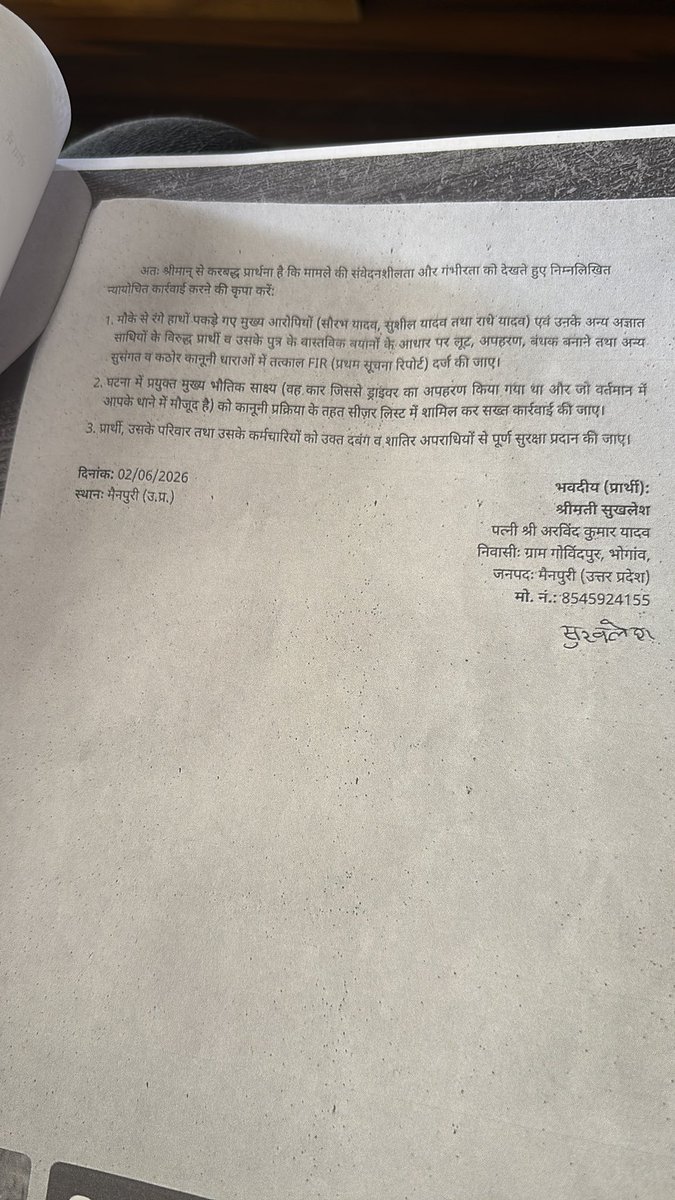 अतः श्रीमान् से करबद्ध प्रार्थना है कि मामले की संवेदनशीलता और गंभीरता को देखते हुए निम्नलिखित
न्यायोचित कार्रवाई करने की कृपा करें:
1. मौके से रंगे हाथों पकड़े गए मुख्य आरोपियों (सौरभ यादव, सुशील यादव तथा राधे यादव) एवं उनके अन्य अज्ञात
साथियों के विरुद्ध प्रार्थी व उसके पुत्र के वास्तविक बयानों के आधार पर लूट, अपहरण, बंधक बनाने तथा अन्य
सुसंगत व कठोर कानूनी धाराओं में तत्काल FIR (प्रथम सूचना रिपोर्ट) दर्ज की जाए।
2. घटना में प्रयुक्त मुख्य भौतिक साक्ष्य (वह कार जिससे ड्राइवर का अपहरण किया गया था और जो वर्तमान में
आपके थाने में मौजूद है) को कानूनी प्रक्रिया के तहत सीज़र लिस्ट में शामिल कर सख्त कार्रवाई की जाए।
3. प्रार्थी, उसके परिवार तथा उसके कर्मचारियों को उक्त दबंग व शातिर अपराधियों से पूर्ण सुरक्षा प्रदान की जाए।
दिनांक: 02/06/2026
स्थान: मैनपुरी (उ.प्र.)
भवदीय (प्रार्थी):
श्रीमती सुखलेश
पत्नी श्री अरविंद कुमार यादव
निवासी: ग्राम गोविंदपुर, भोगांव,
जनपद: मैनपुरी (उत्तर प्रदेश)
मो. नं.: 8545924155
सुखलेश